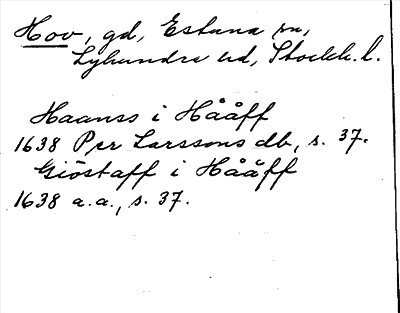 Hov, gd, Estuna sn,
Lyhundra hd, Stockh. l.
Haanss i Hååff
1638 Per Larssons db, s. 37.
Giöstaff i Hååff
1638 a.a., s. 37.